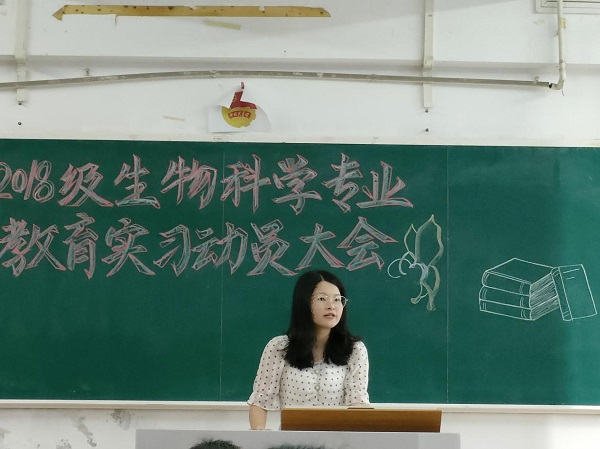 2018级生物科学专业
教育实习动员大会